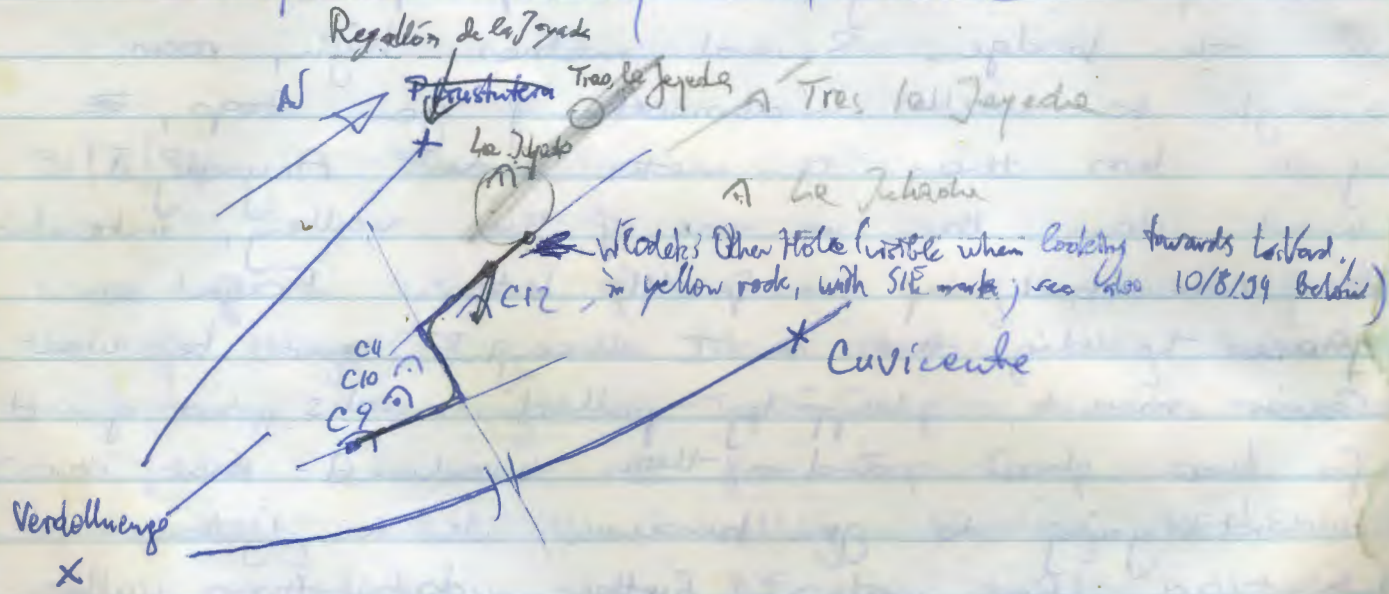 Regallón de la Jayada
N
Tras la Jayada
Tras la Jayada
La Jayada
La
Wlodek's Other Hole (visible when looking towards
in yellow rock, with SIE mark, see also 10/8/94 Below)
C12
C11
C10
C9
Cuvicente
Verdelluenga